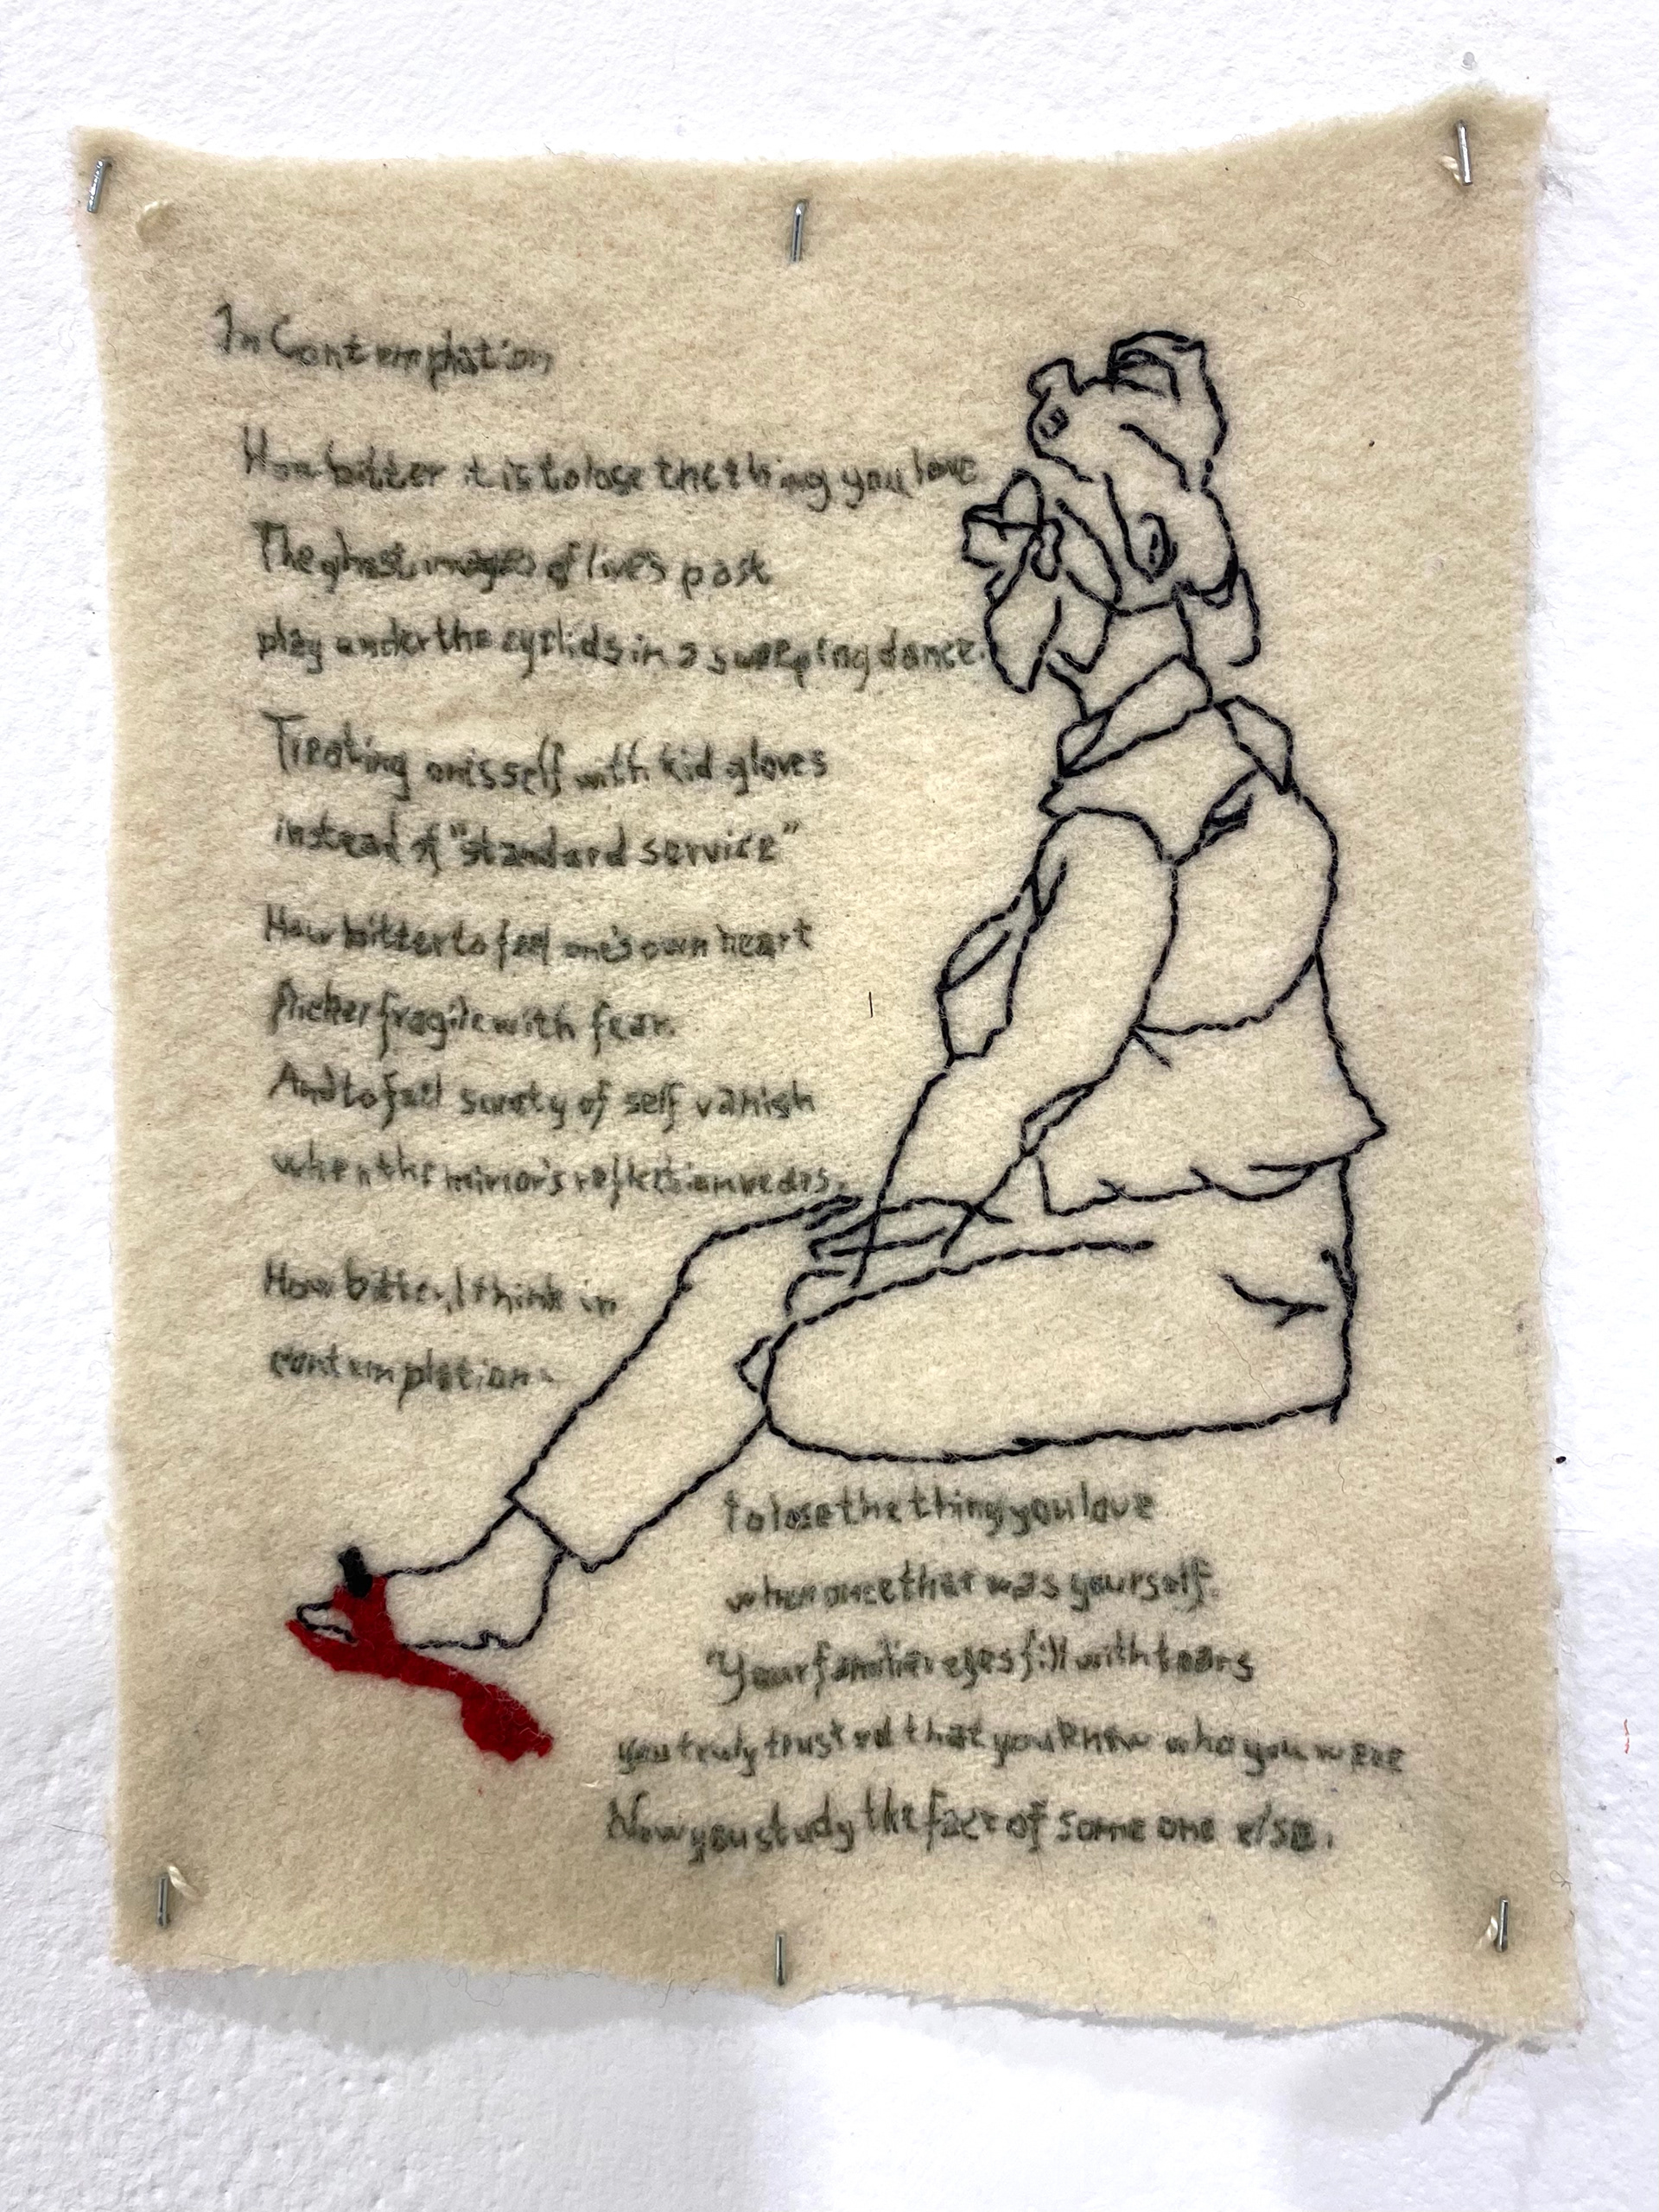 In Contemplation
How bitter it is to lose the thing you love
The ghost images of lives past
play under the eyelids in a sweeping dance.
Treating onesself with kid gloves
instead of "standard service"
How bitter to feel one's own heart
flicker fragile with fear.
And to feel surety of self vanish
when the mirror's reflection
How bitter, I think in
contemplation
To lose the thing you love
when once that was yourself.
Your familiar eyes fill with tears
you truly trusted that you knew who you were
Now you study the face of some one else.